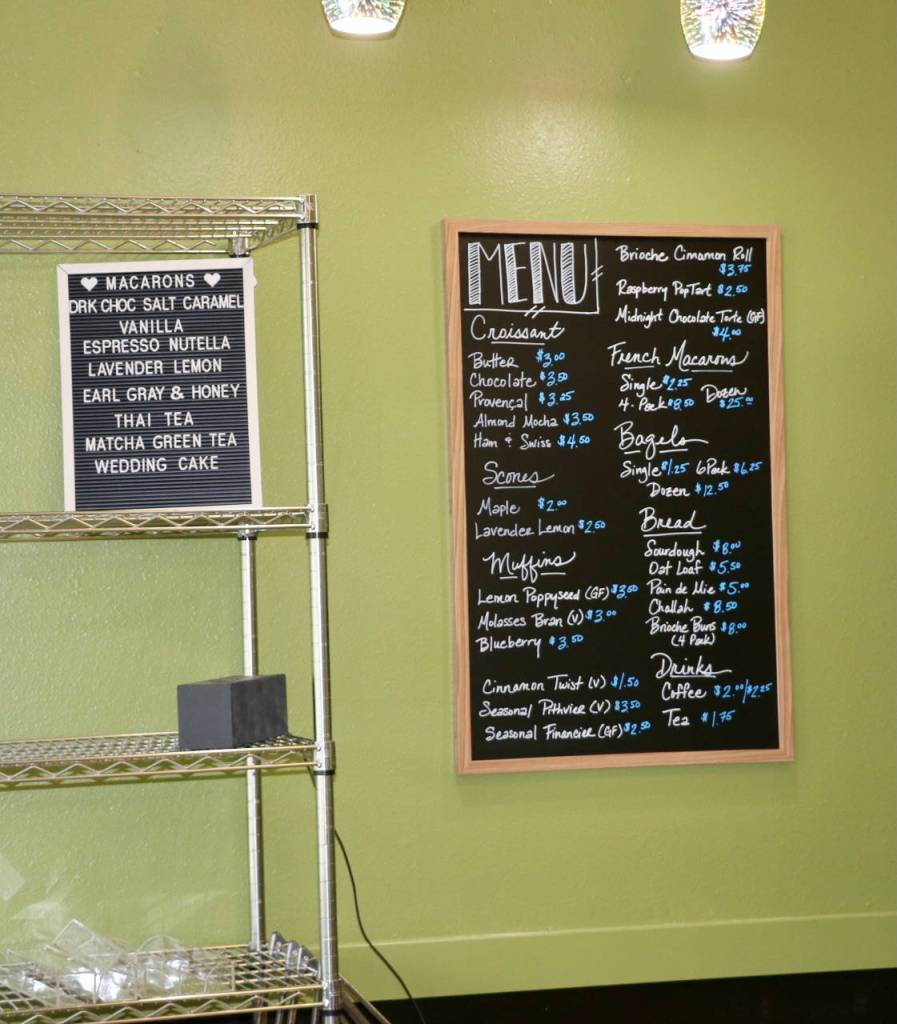 MACARONS
DRK CHOC SALT CARAMEL
VANILLA
ESPRESSO NUTELLA
LAVENDER LEMON
EARL GRAY & HONEY
THAI TEA
MATCHA GREEN TEA
WEDDING CAKE
MENU
Croissant
Butter $3.00
Chocolate $3.50
Provençal $3.25
Almond Mocha $3.50
Ham & Swiss $4.50
Scones
Maple $2.00
Lavender Lemon $2.50
Muffins
Lemon Poppyseed (GF) $3.50
Molasses Bran (V) $3.00
Blueberry $3.50
Cinnamon Twist (V) $1.50
Seasonal Pithvier (V) $3.50
Seasonal Financier (GF) $2.50
Brioche Cinnamon Roll
$3.75
Raspberry PopTart $2.50
Midnight Chocolate Torte (GF)
$4.00
French Macarons
Single $2.25
4-Pack $8.50
Dozen
$25.00
Bagels
Single $1.25 6Pack $6.25
Dozen $12.50
Bread
Sourdough $8.00
Oat Loaf $5.50
Pain de Mie $5.00
Challah $8.50
Brioche Buns $8.00
(4 Pack)
Drinks
Coffee $2.00/$2.25
Tea $1.75